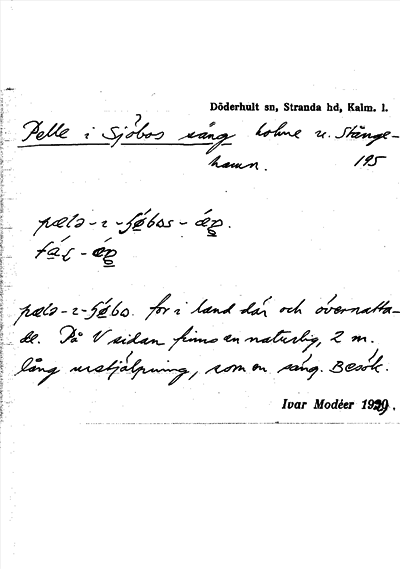 Döderhult sn, Stranda hd, Kalm. l.
Pelle i Sjöbos säng holme v. Stånge-
hamn. 195
pælə-ı-ʃǿbos-
pælə-ı-ʃǿbo. for i land där och övernatta-
de. På V sidan finns en naturlig, 2 m.
lång urstjälpning, som en säng. Besök.
Ivar Modéer 1929.